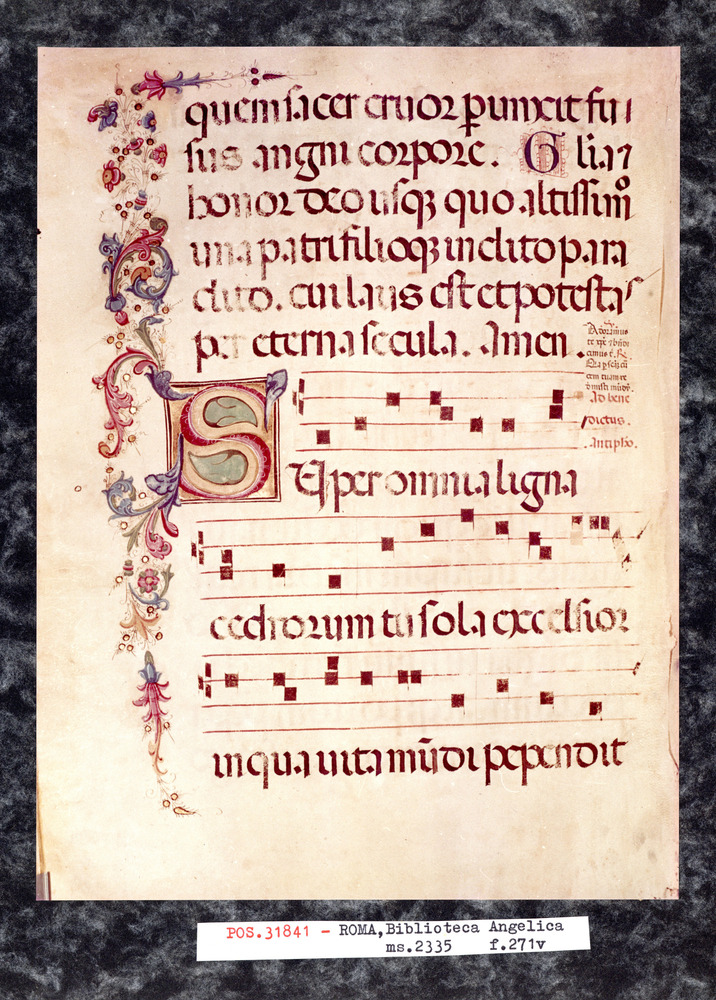 quem sacer cruor punxit fu
sus angni corpore. Glia ⁊
honor deo usq; quo altissimo
una patri filioq; inclito para
clito. cui laus est et potestas
per eterna secula. Amen.
Adoramus
te xpe ⁊ bndi
cimus t. R.
Ad bene
dictus.
Antipho.
Super omnia ligna
cedrorum tu sola excelsior
in qua uita mūdi pependit
POS.31841 - ROMA,Biblioteca Angelica
ms.2335 f.271v